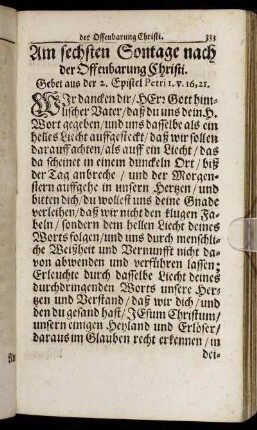 der Offenbarung Christi. 333
Am sechsten Sontage nach
der Offenbarung Christi.
Gebet aus der 2. Epistel Petri 1. v. 16, 21.
WIr dancken dir / HErr Gott him-
lischer Vater / daß du uns dein H.
Wort gegeben / und uns dasselbe als ein
helles Liecht auffgesteckt / daß wir sollen
darauff achten / als auff ein Liecht / das
da scheinet in einem dunckeln Ort / biß
der Tag anbreche / und der Morgen-
stern auffgehe in unsern Hertzen / und
bitten dich / du wollest uns deine Gnade
verleihen / daß wir nicht den klugen Fa-
beln / sondern dem hellen Liecht deines
Worts folgen / und uns durch menschli-
che Weißheit und Vernunfft nicht da-
von abwenden und verführen lassen;
Erleuchte durch dasselbe Liecht deines
durchdringenden Worts unsere Her-
tzen und Verstand / daß wir dich / und
den du gesand hast / JEsum Christum /
unsern einigen Heyland und Erlöser /
daraus im Glauben recht erkennen / in
dei-